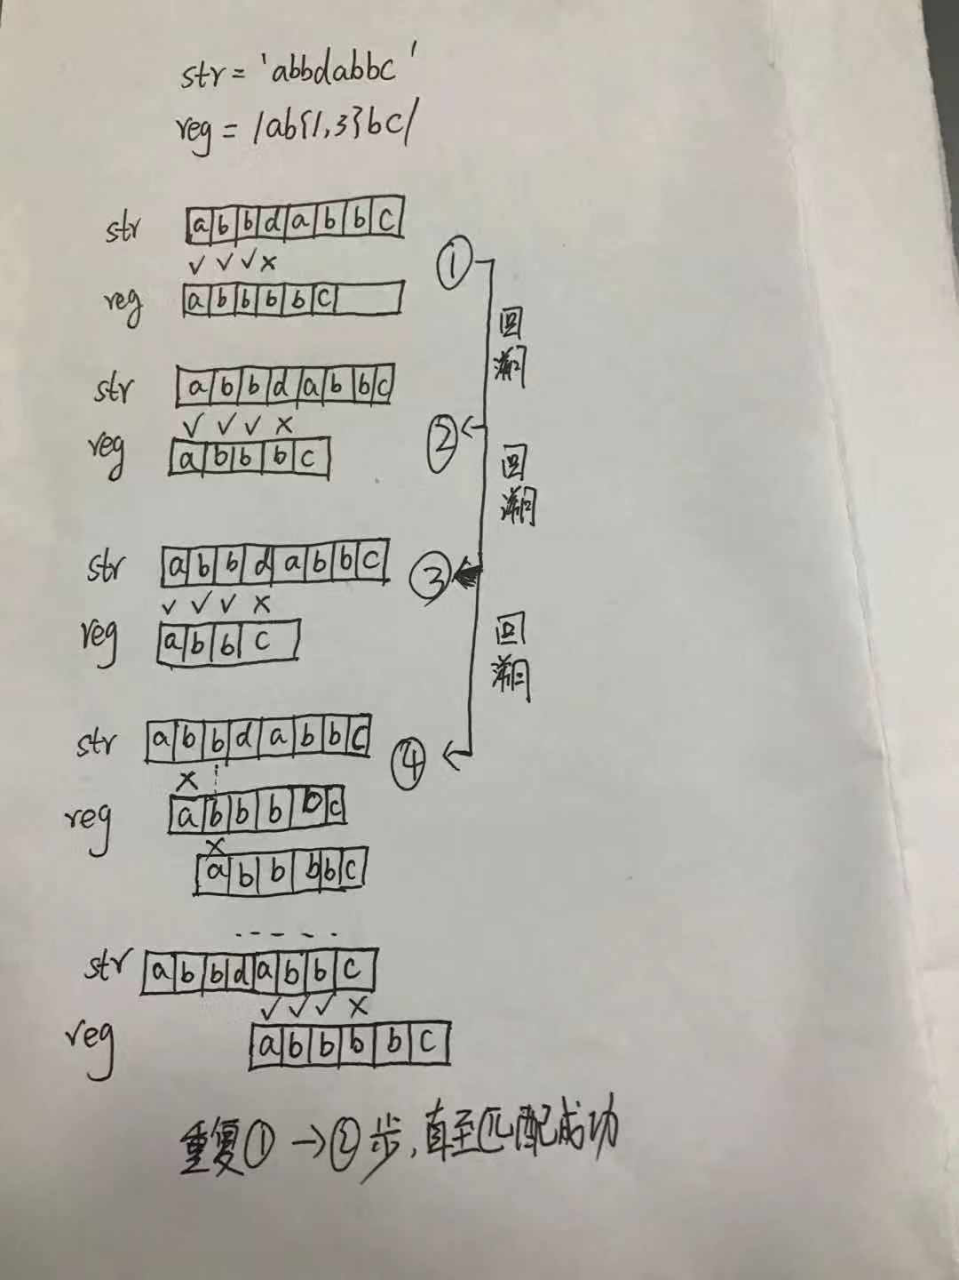 str = 'abbdabbc'
reg = /ab{1,3}bc/
str a b b d a b b c
✓ ✓ ✓ ×
reg a b b b b c
①
回溯
str a b b d a b b c
✓ ✓ ✓ ×
reg a b b b c
②
回溯
str a b b d a b b c
✓ ✓ ✓ ×
reg a b b c
③
回溯
str a b b d a b b c
④
×
reg a b b b b c
×
a b b b b c
.....
str a b b d a b b c
✓ ✓ ✓ ×
reg a b b b b c
重复① → ②步,直至匹配成功